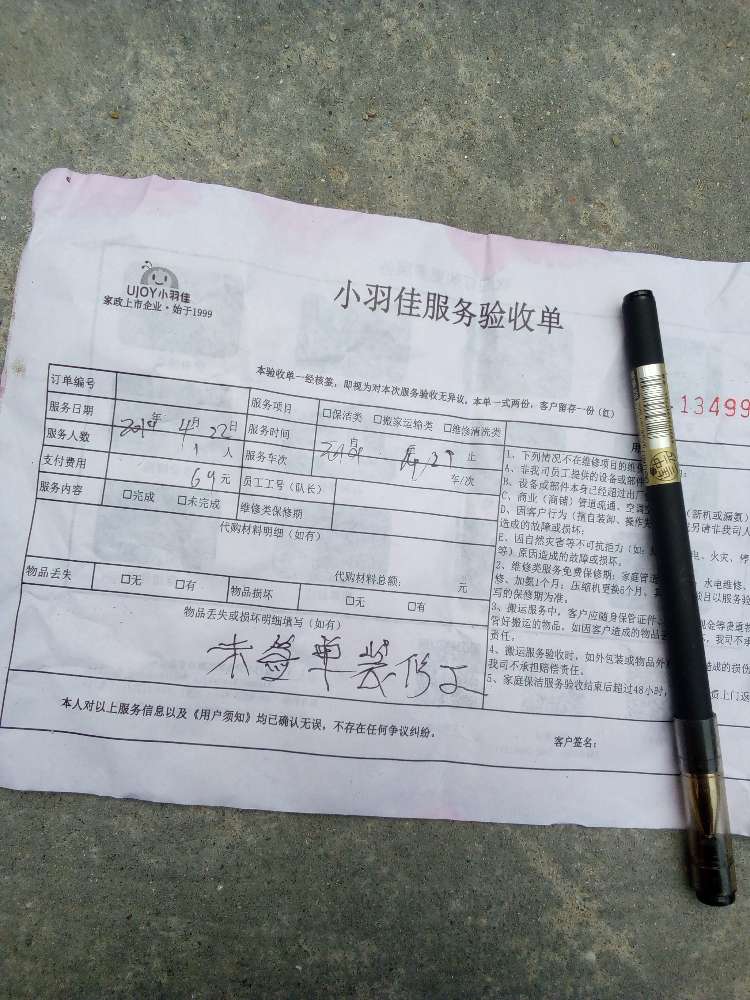 UJOY小羽佳
家政上市企业·始于1999
小羽佳服务验收单
本验收单一经核签，即视为对本次服务验收无异议。本单一式两份，客户留存一份（红）
13499
订单编号
服务项目 □保洁类 □搬家运输类 □维修清洗类
服务日期 年 4月 22日
服务时间 月 止
服务人数 1 人
服务车次 车/次
支付费用 69元
员工工号（队长）
服务内容 □完成 □未完成
维修类保修期
代购材料明细（如有）
代购材料总额： 元
物品丢失 □无 □有 物品损坏 □无 □有
物品丢失或损坏明细填写（如有）
未签单装修工
本人对以上服务信息以及《用户须知》均已确认无误，不存在任何争议纠纷。
客户签名：
用
1、下列情况不在维修项目的维保
A、非我司员工提供的设备或部件
B、设备或部件本身已经超过出厂
C、商业（商铺）管道疏通、空调 （新机或漏氨）
D、因客户行为（擅自装卸、操作 另请非我司人
造成的故障或损坏；
E、因自然灾害等不可抗拒力（如： 电、火灾、停
等）原因造成的故障或损坏。
2、维修类服务免费保修期：家庭管道 、水电维修、
修、加氨1个月；压缩机更换6个月， 目以服务验
写的保修期为准。
3、搬运服务中，客户应随身保管证件、 现金等贵重物
管好搬运的物品，如因客户造成的物品 ，我司不承
责任。
4、搬运服务验收时，如外包装或物品外 造成的损伤
我司不承担赔偿责任。
5、家庭保洁服务验收结束后超过48小时， 上门返